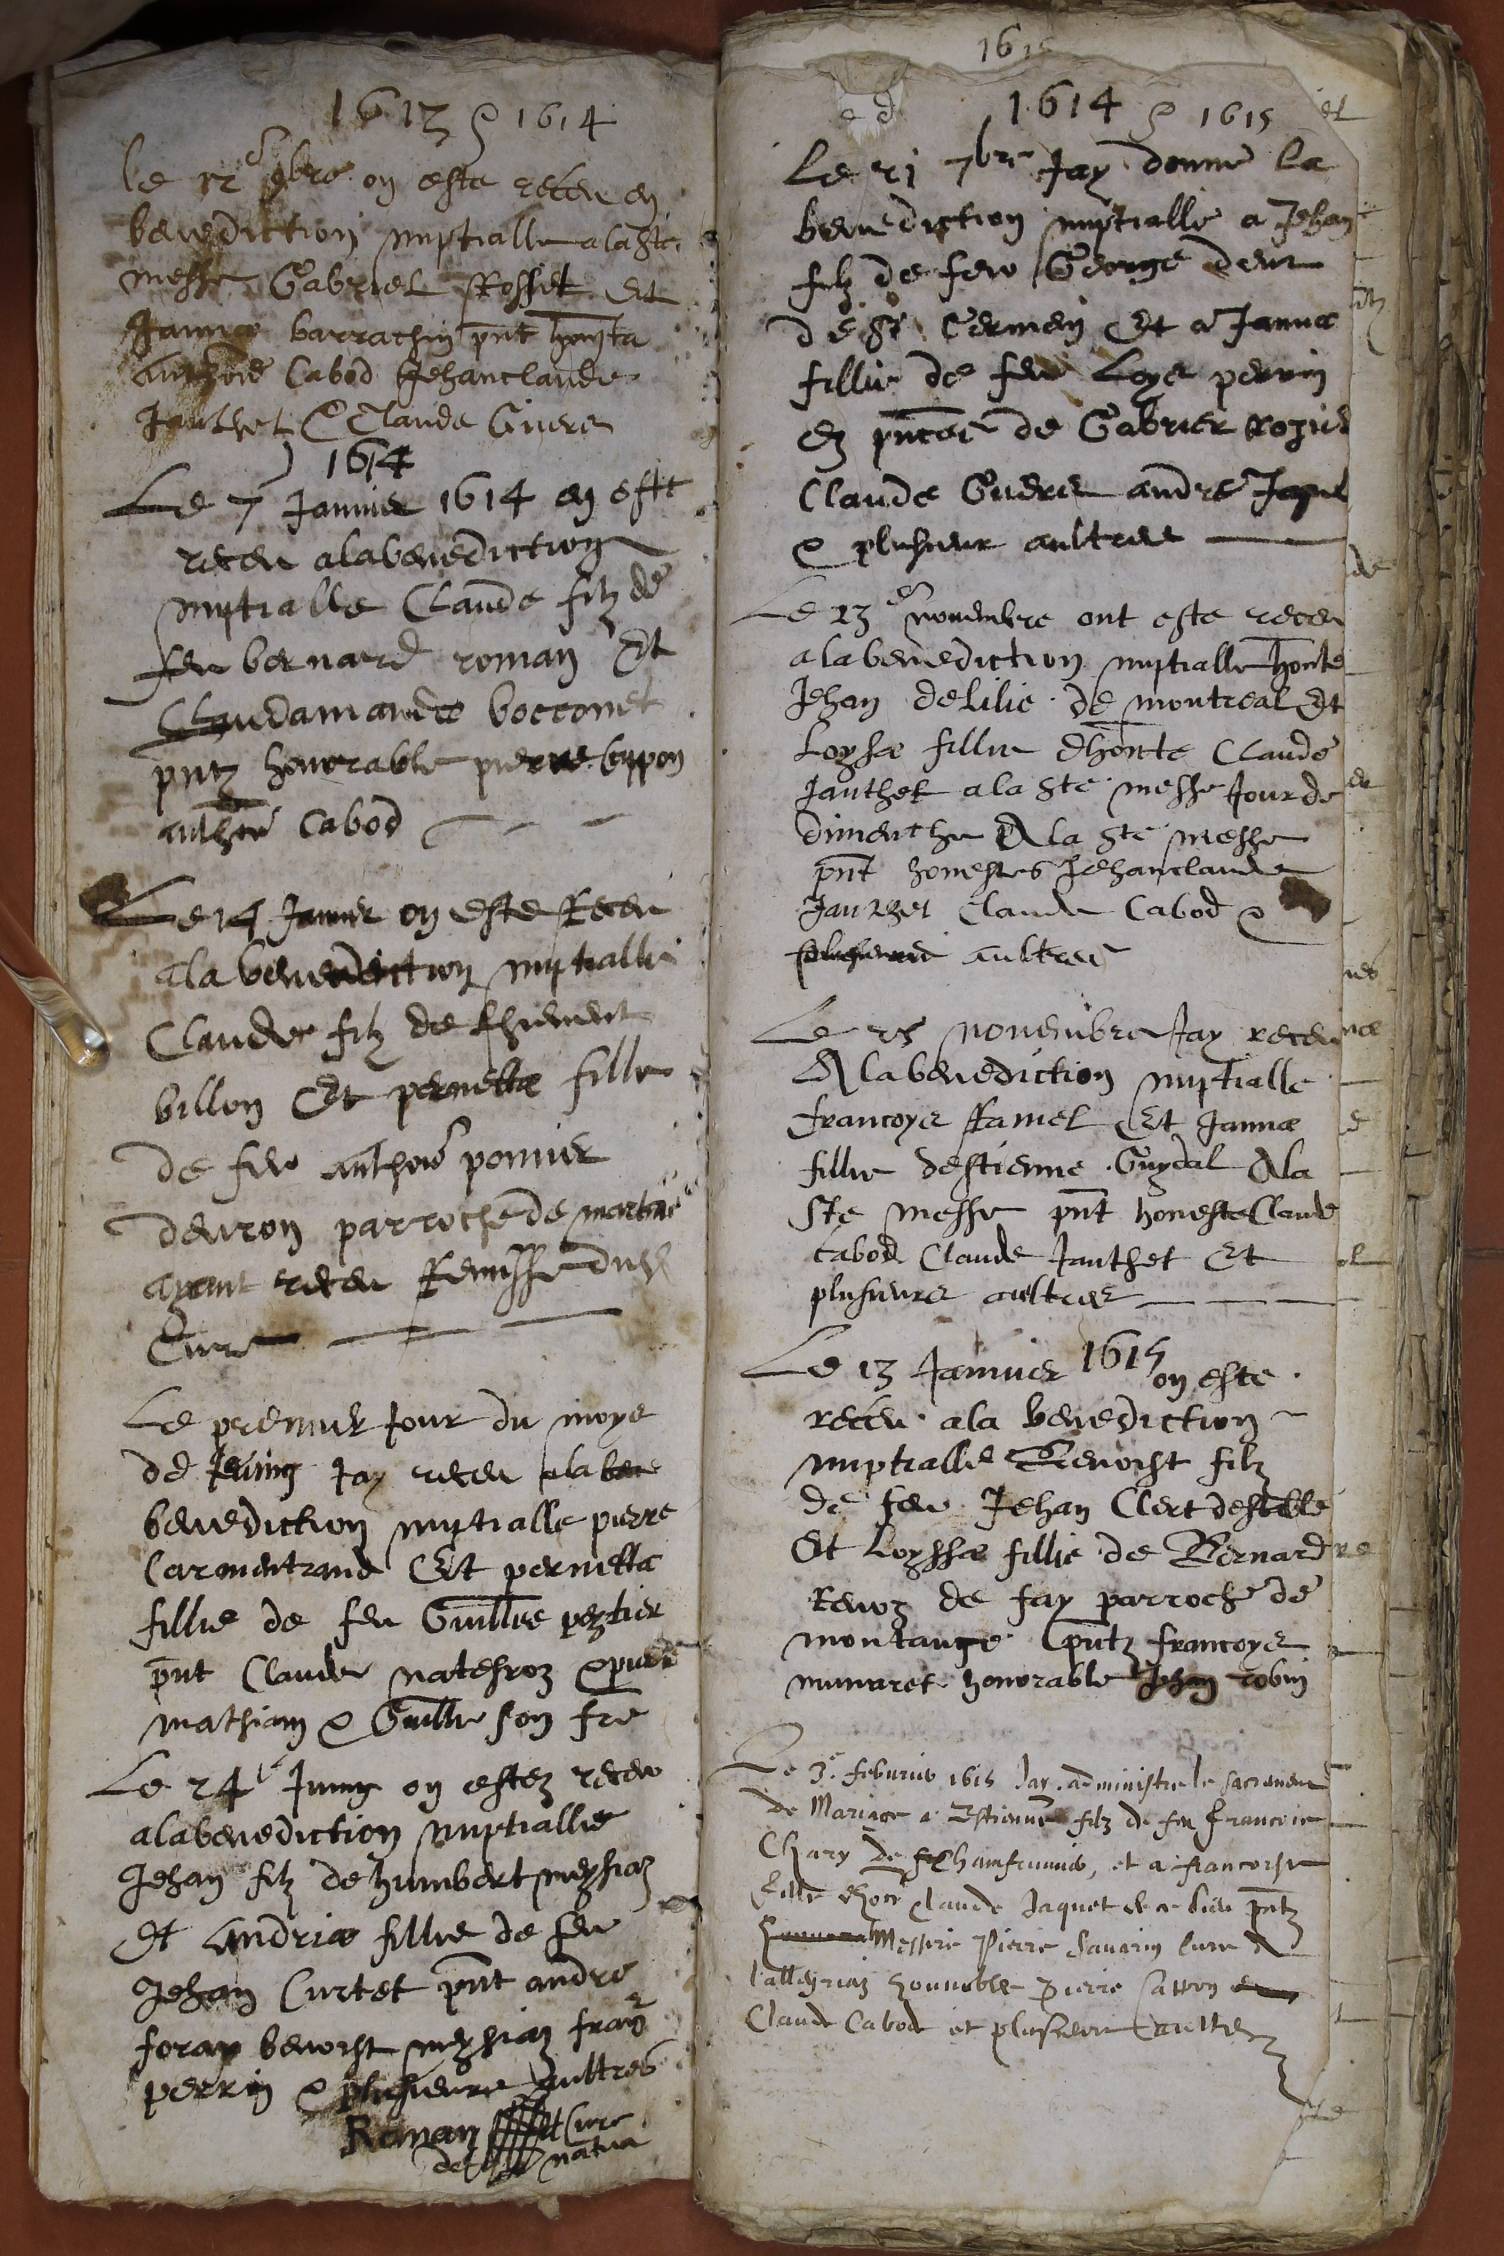 1613 & 1614
Le 12e 9bre on este receu en
benediction nuptialle a la Ste
messe Gabriel Rosset Et
Janna barrachin pnt honeste
anthoine Cabod Jehanclaude
Janthet & Claude Guere
1614
Le 7 Janvier 1614 on este
receu alabenediction
nuptialle Claude filz de
feu bernard roman Et
Claudamandre boccouet
pntz honnorable pierre
anthoine Cabod
Le 14 Janvier on este Receu
a la benediction nuptialle
Claude filz de
billon Et pernetta fillie
de feu anthoine ponnier
deuron parroche de
ayant receu Remisse du Sr
Cure
Le premier Jour du moys
de Juing Jay receu a la bene
benediction nuptialle pierre
Carmentrand Et pernetta
fillie de feu Guillme
pnt Claude & pierre
mathiam & Guillme son fre
Le 24e Juing on estez receu
alabenediction nuptialle
Jehan filz de humbert meyssiaz
Et Andria fillie de feu
Jehan Curtet pnt andre
foray benoist meyssiaz franc
perrin & plusieurs aultres
Roman Cure
de natua
1615
1614 & 1615
Le 21 7bre Jay donne la
benediction nuptialle a Jehan
filz de feu George
de St Germain Et a Janna
fillie de feu Loys perrin
En pntce de Gabriel
Claude Guere andre
& plusieurs aultres
Le 23e novembre ont este receu
alabenediction nuptialle honte
Jehan delilie de montreal Et
Loyse fillie dhonte Claude
Janthet a la Ste messe Jour de
dimenche A la Ste messe
pnt honestes Jehanclaude
Janthet Claude Cabod &
plusieurs aultres
Le 25 novembre Jay receu
A labenediction nuptialle
francoys Ramel Et Janna
fillie destienne Guydal A la
Ste messe pnt honeste Claude
Cabod Claude Janthet Et
plusieurs aultres
Le 13 Janvier 1615 on este
receu a la benediction
nuptialle Benoist filz
de feu Jehan Clert
Et Loyssa fillie de Bernard
Renoz de fay parroche de
montange pntz francoys
munaret honorable Jehan robin
Le 3e febvrier 1615 Jay administre le sacrement
de Mariage a Estienne filz de feu francois
Chary de et a francoise
fille dhon Claude Jaquet de ce lieu pntz
Messire Pierre Savarin Cure de
honnorable Pierre
Claude Cabod et plusieurs aultres